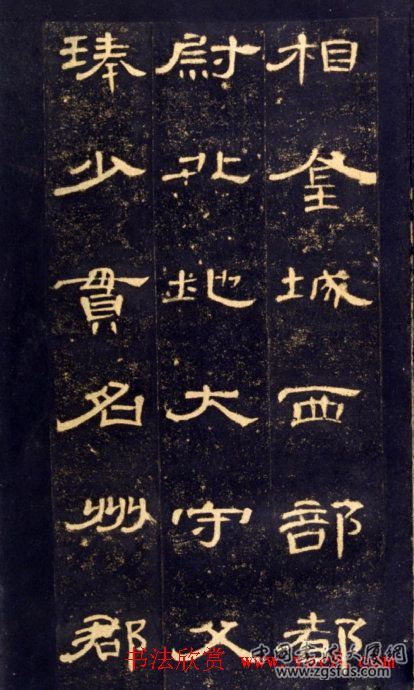 相金城西部都
尉北地大守父
琫少貫名州郡
书法欣赏 www.yac8.com
中国书法大展网
www.zgsfds.com